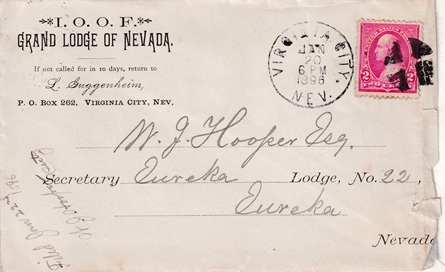 I. O. O. F.
GRAND LODGE OF NEVADA.
If not called for in 10 days, return to
L. Guggenheim,
P. O. Box 262, Virginia City, Nev.
VIRGINIA CITY,
JAN
20
6 PM
1896
NEV.
2 2
W. J. Hooper Esq.
Secretary Eureka Lodge, No. 22,
Eureka
Nevada
Filed Jan 22nd/96